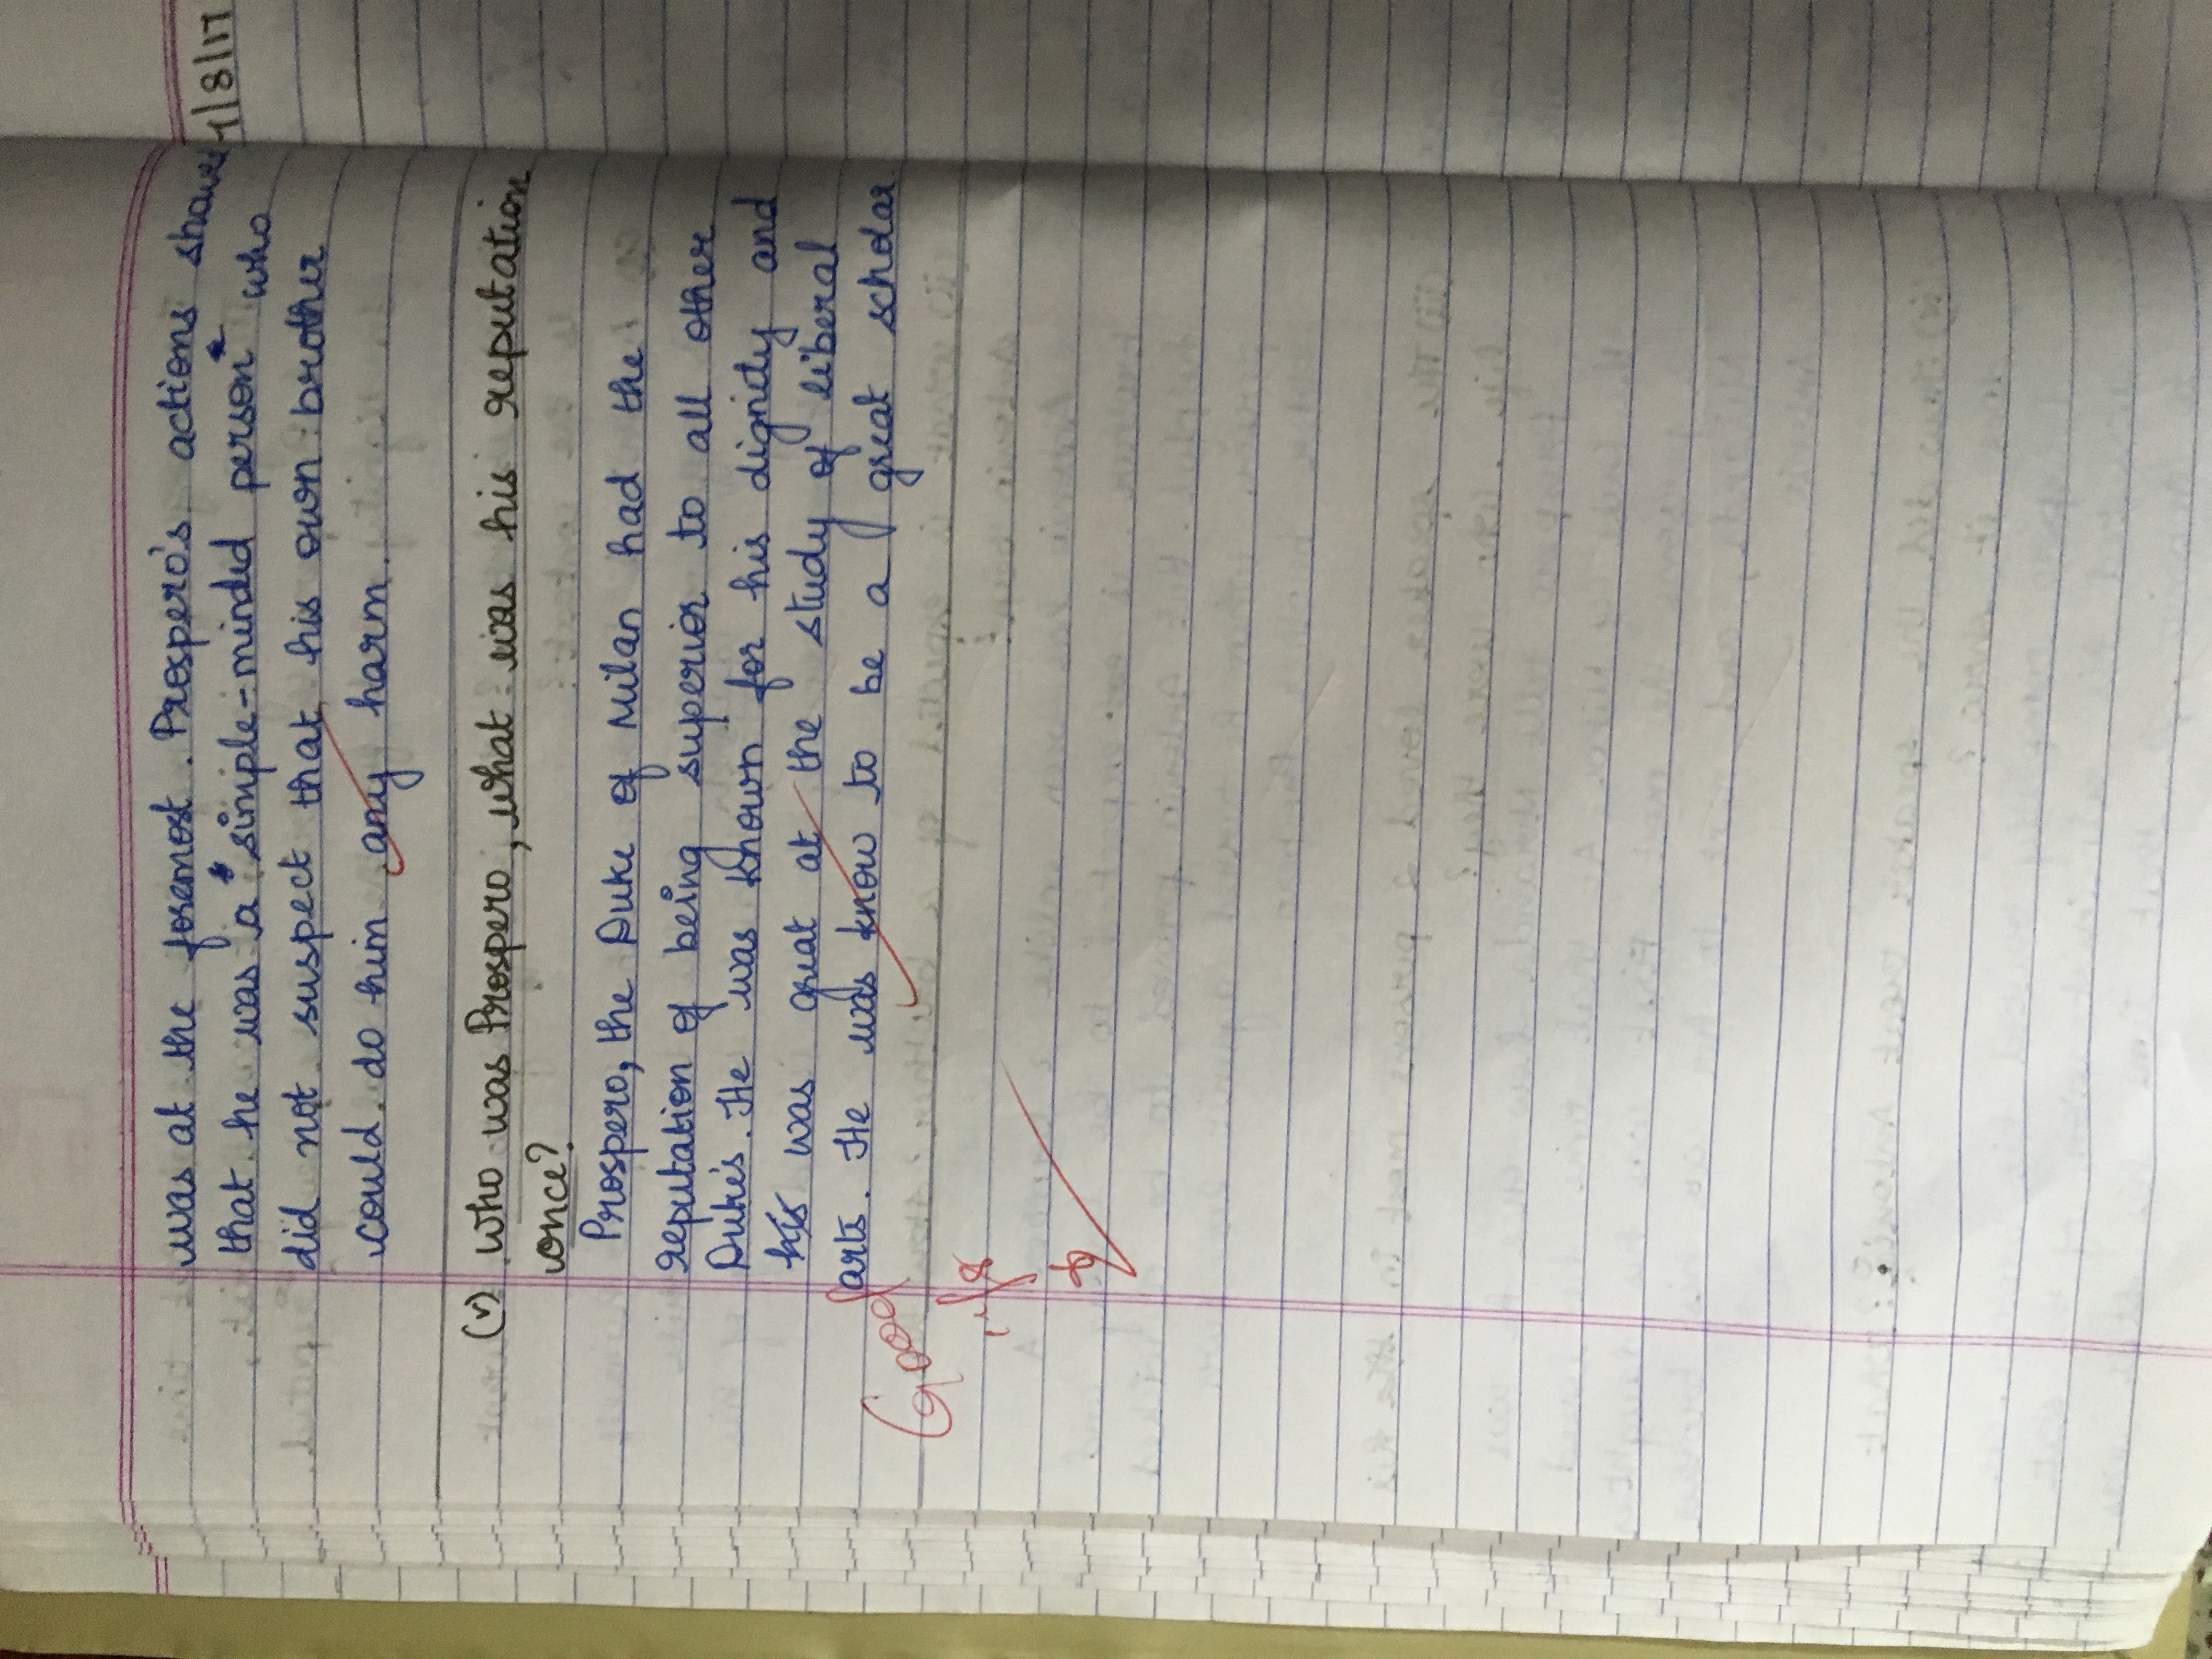 was at the foremost. Prospero's actions shows
that he was a *simple-minded person* who
did not suspect that his own brother
could do him any harm.
(v) Who was Prospero, what was his reputation
once?
Prospero, the Duke of Milan had the
reputation of being superior to all other
Duke's. He was known for his dignity and
his was great at the study of liberal
arts. He was know to be a great scholar
Good
/8/17